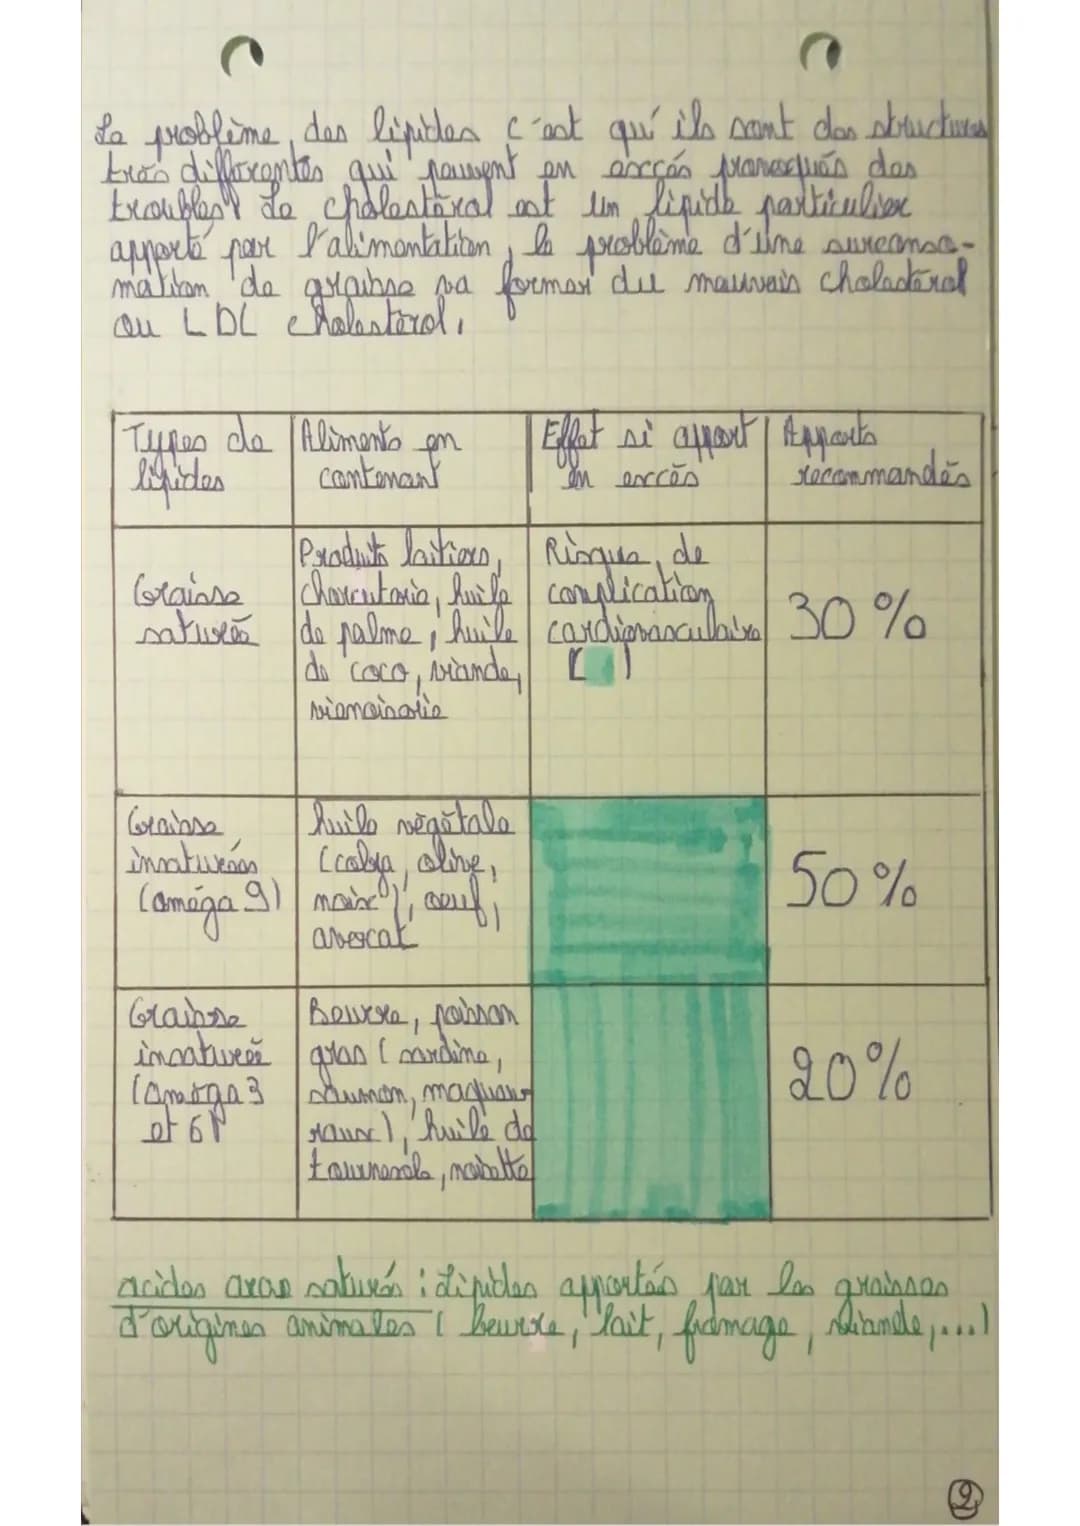 Le problème des lipides c'est qu'ils sont des structures
très différentes qui peuvent en excés provoqués des
troubles. Le cholestéral est un lipide particulier
apporté par l'alimentation, le problème d'une surconso-
mation de graisse va former du mauvais cholestéral
ou LDL cholestérol.
Types de lipides
Aliments en contenant
Effet si apport en excès
Apports recommandés
Graisse saturée
Produits laitiers, charcuterie, huile de palme, huile de coco, viande, viennoiserie
Risque de complication cardiovasculaire ( )
30 %
Graisse insaturées (oméga 9)
huile végétale (colza, olive, noix), oeuf, avocat
50 %
Graisse insaturée (oméga 3 et 6)
Beurre, poisson gras (sardine, saumon, maquereaux), huile de tournesole, noisette
20 %
acides gras saturés : Lipides apportés par les graisses
d'origines animales ( beurre, lait, fromage, viande,...)
2